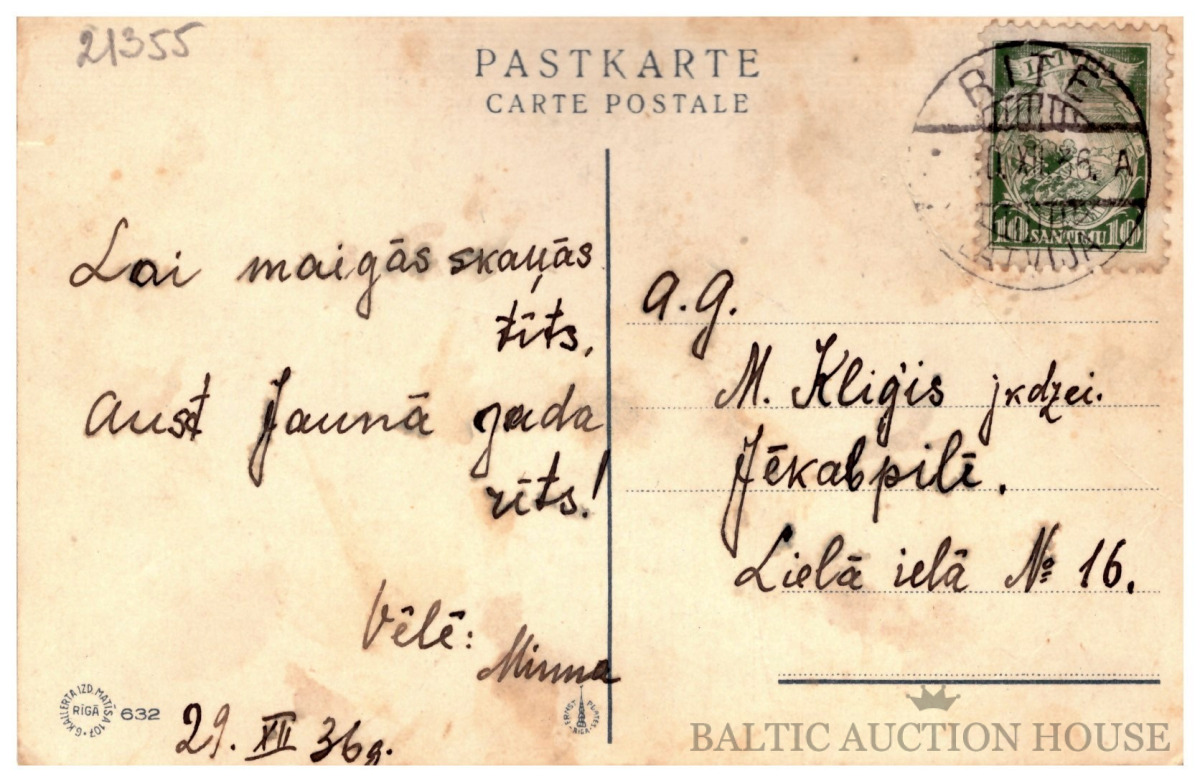 21355
PASTKARTE
CARTE POSTALE
BITE
XII 36. A
LATVIJA
10 SANTIMU 10
Lai maigās skaņās
tīts,
aust Jaunā gada
rīts!
Vēlē:
Minna
29. XII 36g.
a.g.
M. Kliģis jkdzei.
Jēkabpilī.
Lielā ielā № 16.
G. KAILERTA IZD. MATĪSA 107
RĪGĀ
632
ERNST PLATES
RIGA
BALTIC AUCTION HOUSE